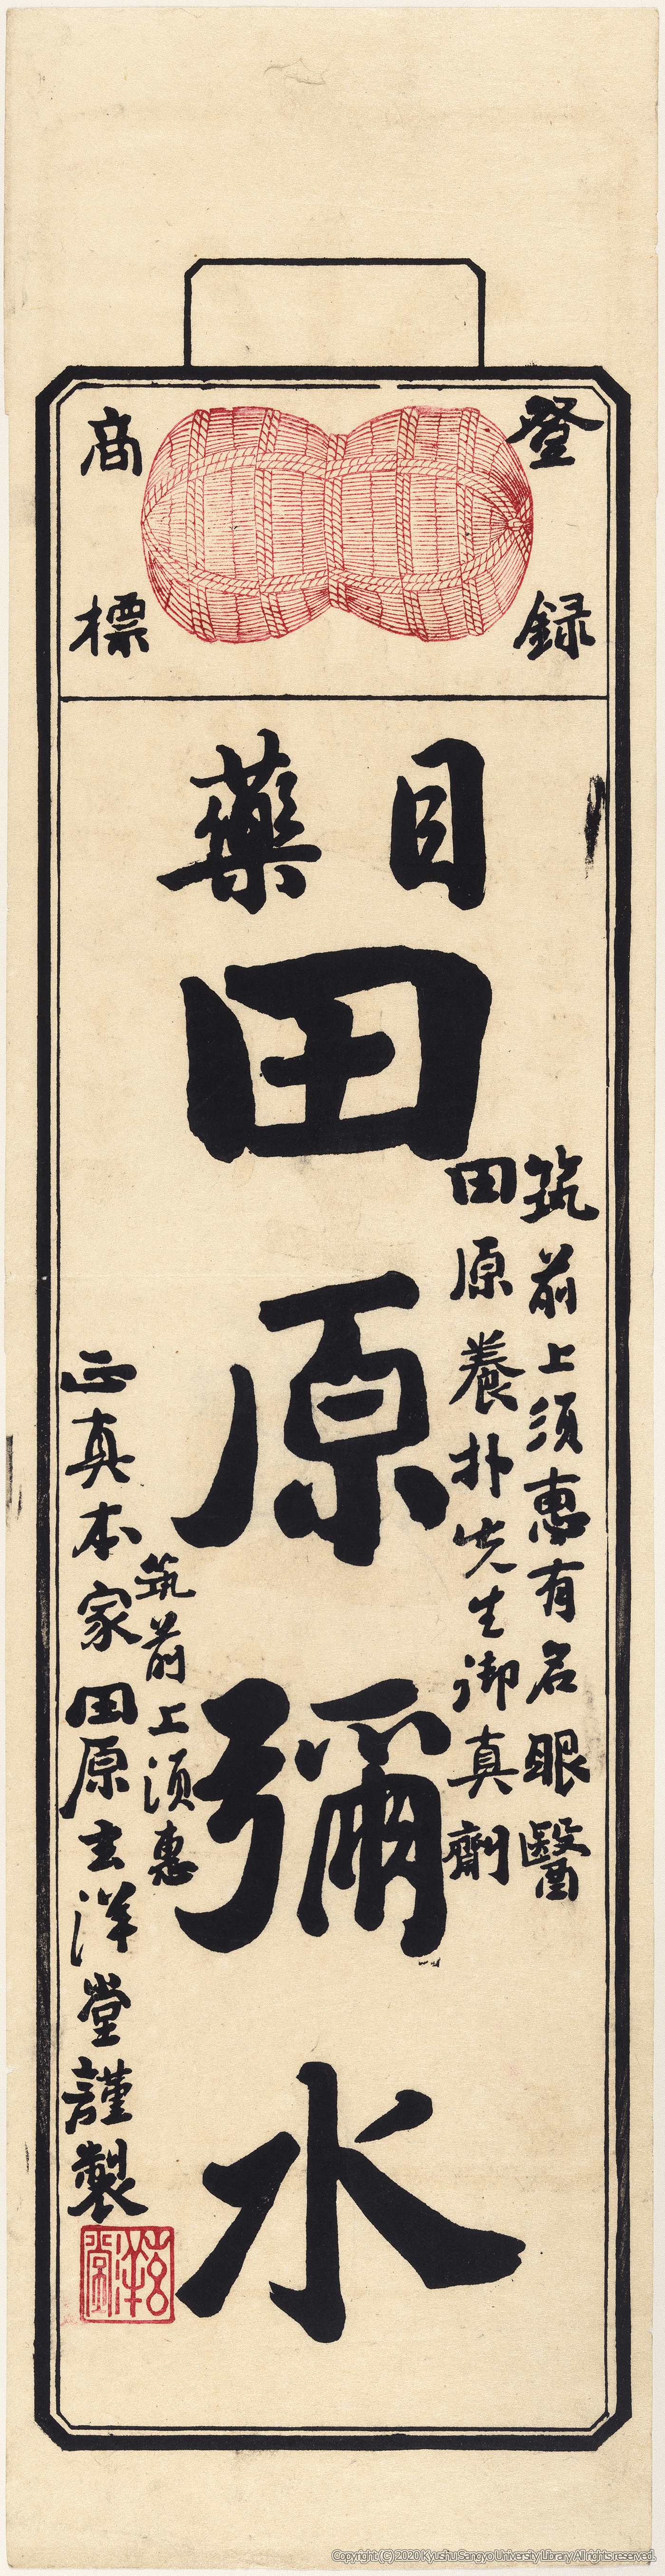 登録
商標
目藥
田原彌水
筑前上須惠有名眼醫
田原養朴先生御真劑
筑前上須惠
正真本家田原玄洋堂謹製
玄洋堂
Copyright (C) 2020 Kyushu Sangyo University Library All rights reserved.